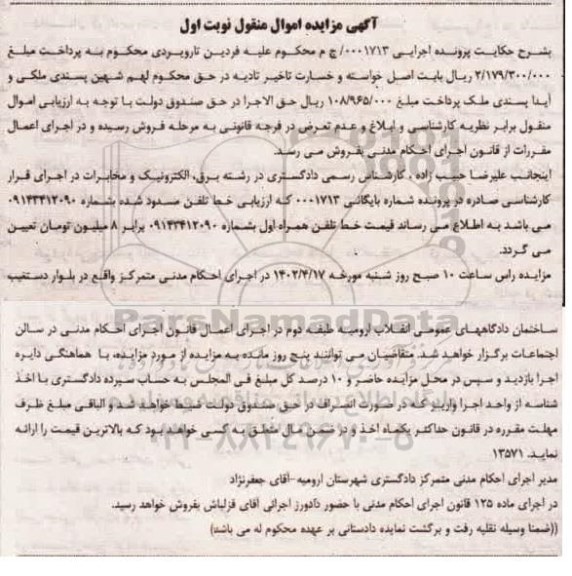 آگهی مزایده اموال منقول نوبت اول
بشرح حکایت پرونده اجرایی ۰۰۰۱۷۱۳/ ج م محکوم علیه فردین تارویردی محکوم به پرداخت مبلغ
۲/۱۷۹/۳۰۰/۰۰۰ ریال بابت اصل خواسته و خسارت تاخیر تادیه در حق محکوم لهم شهین پسندی ملکی و
آیدا پسندی ملک پرداخت مبلغ ۱۰۸/۹۶۵/۰۰۰ ریال حق الاجرا در حق صندوق دولت با توجه به ارزیابی اموال
منقول برابر نظریه کارشناسی و ابلاغ و عدم تعرض در فرجه قانونی به مرحله فروش رسیده و در اجرای اعمال
مقررات از قانون اجرای احکام مدنی بفروش می رسد.
اینجانب علیرضا حبیب زاده ، کارشناس رسمی دادگستری در رشته برق، الکترونیک و مخابرات در اجرای قرار
کارشناسی صادره در پرونده شماره بایگانی ۰۰۰۱۷۱۳ که ارزیابی خط تلفن مسدود شده بشماره ۰۹۱۴۳۴۱۲۰۹۰
می باشد به اطلاع می رساند قیمت خط تلفن همراه اول بشماره ۰۹۱۴۳۴۱۲۰۹۰ برابر ۸ میلیون تومان تعیین
می گردد.
مزایده راس ساعت ۱۰ صبح روز شنبه مورخه ۱۴۰۲/۴/۱۷ در اجرای احکام مدنی متمرکز واقع در بلوار دستغیب
ساختمان دادگاههای عمومی انقلاب ارومیه طبقه دوم در اجرای اعمال قانون اجرای احکام مدنی در سالن
اجتماعات برگزار خواهد شد. متقاضیان می توانند پنج روز مانده به مزایده از مورد مزایده، با هماهنگی دایره
اجرا بازدید و سپس در محل مزایده حاضر و ۱۰ درصد کل مبلغ فی المجلس به حساب سپرده دادگستری با اخذ
شناسه از واحد اجرا واریز که در صورت انصراف در حق صندوق دولت ضبط خواهد شد و الباقی مبلغ ظرف
مهلت مقرره در قانون حداکثر یکماه اخذ و در ضمن مال متعلق به کسی خواهد بود که بالاترین قیمت را ارائه
نماید. ۱۳۵۷۱
مدیر اجرای احکام مدنی متمرکز دادگستری شهرستان ارومیه-آقای جعفرنژاد
در اجرای ماده ۱۲۵ قانون اجرای احکام مدنی با حضور دادورز اجرائی آقای قزلباش بفروش خواهد رسید.
((ضمنا وسیله نقلیه رفت و برگشت نماینده دادستانی بر عهده محکوم له می باشد)
ParsNamadData
۰۲۱-۸۸۳۴۹۶۷۰-۵